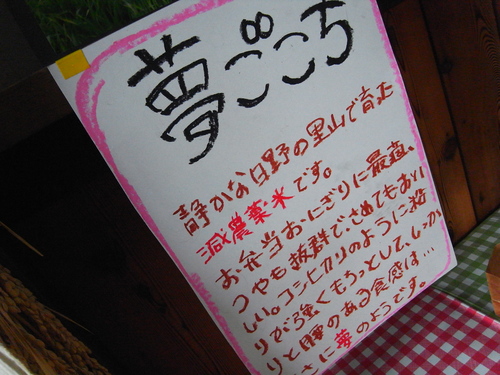 夢ごこち
静かな日野の里山で育む
減農薬米です。
お弁当おにぎりに最適、
つやも抜群で、さめてもおい
しい。コシヒカリのように粘
りが強くもちっとして、しっか
りと腰のある食感は…
さに夢のようです。